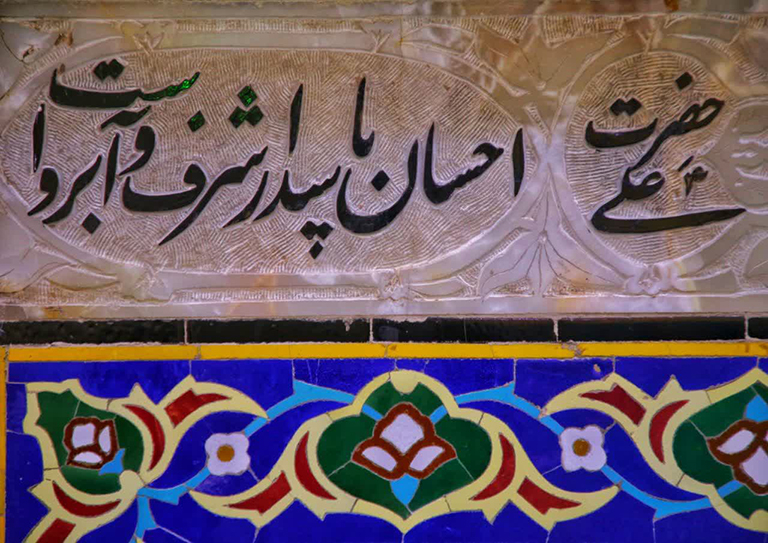 حضرت علی ع
احسان پاسدار شرف و آبرو است